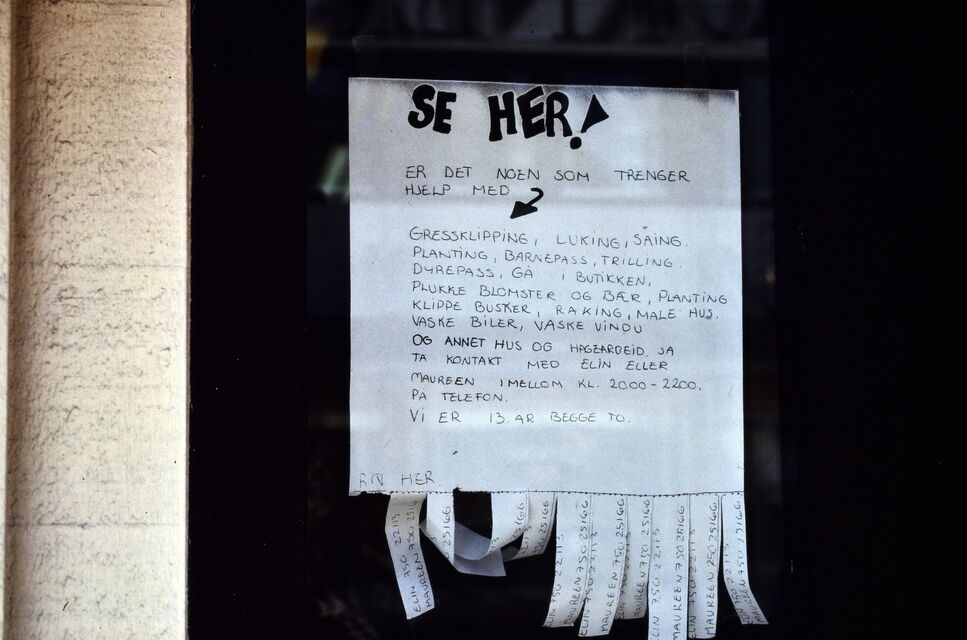 SE HER!
ER DET NOEN SOM TRENGER
HJELP MED
GRESSKLIPPING, LUKING, SÅING.
PLANTING, BARNEPASS, TRILLING.
DYREPASS, GÅ I BUTIKKEN,
PLUKKE BLOMSTER OG BÆR, PLANTING
KLIPPE BUSKER, RAKING, MALE HUS.
VASKE BILER, VASKE VINDU
OG ANNET HUS OG HAGEARBEID. SÅ
TA KONTAKT MED ELIN ELLER
MAUREEN IMELLOM KL. 20.00-22.00.
PÅ TELEFON.
VI ER 13. ÅR BEGGE TO.
RIV HER.
ELIN 750 22113
MAUREEN 750 25166
ELIN 750 22113
MAUREEN 750 25166
ELIN 750 22113
MAUREEN 750 25166
MAUREEN 750 25166
ELIN 750 22113
MAUREEN 750 25166
MAUREEN 750 25166
ELIN 750 22113
MAUREEN 750 25166